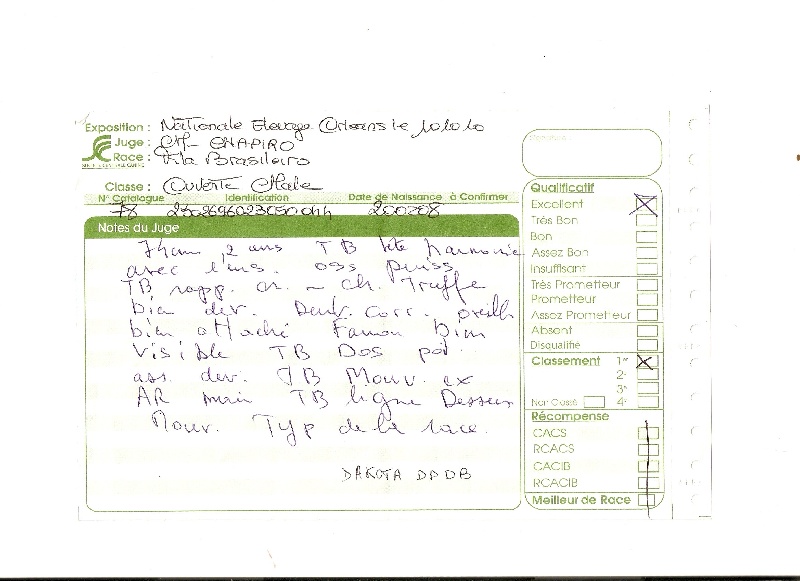 Exposition : Nationale Elevage Orleans le 10 10 10
Juge : CHAPIRO
Race : Fila Brasileiro
SOCIETE CENTRALE CANINE
Classe : Ouverte Male
N° Catalogue Identification Date de Naissance à Confirmer
78 200208
Notes du Juge
74 cm 2 ans TB tête harmonie
avec l'ens. oss puiss
TB rapp. cr. - ch. Truffe
bien dev. Dent. corr. oreill
bien attaché Fanon bien
visible TB Dos poit.
ass. dev. TB Mouv. ex
AR main TB ligne Dessus
Mouv. Typ de la race.
DAKOTA DDDB
Qualificatif
Excellent
Très Bon
Bon
Assez Bon
Insuffisant
Très Prometteur
Prometteur
Assez Prometteur
Absent
Disqualifié
Classement 1er
2e
3e
Non Classé 4e
Récompense
CACS
RCACS
CACIB
RCACIB
Meilleur de Race